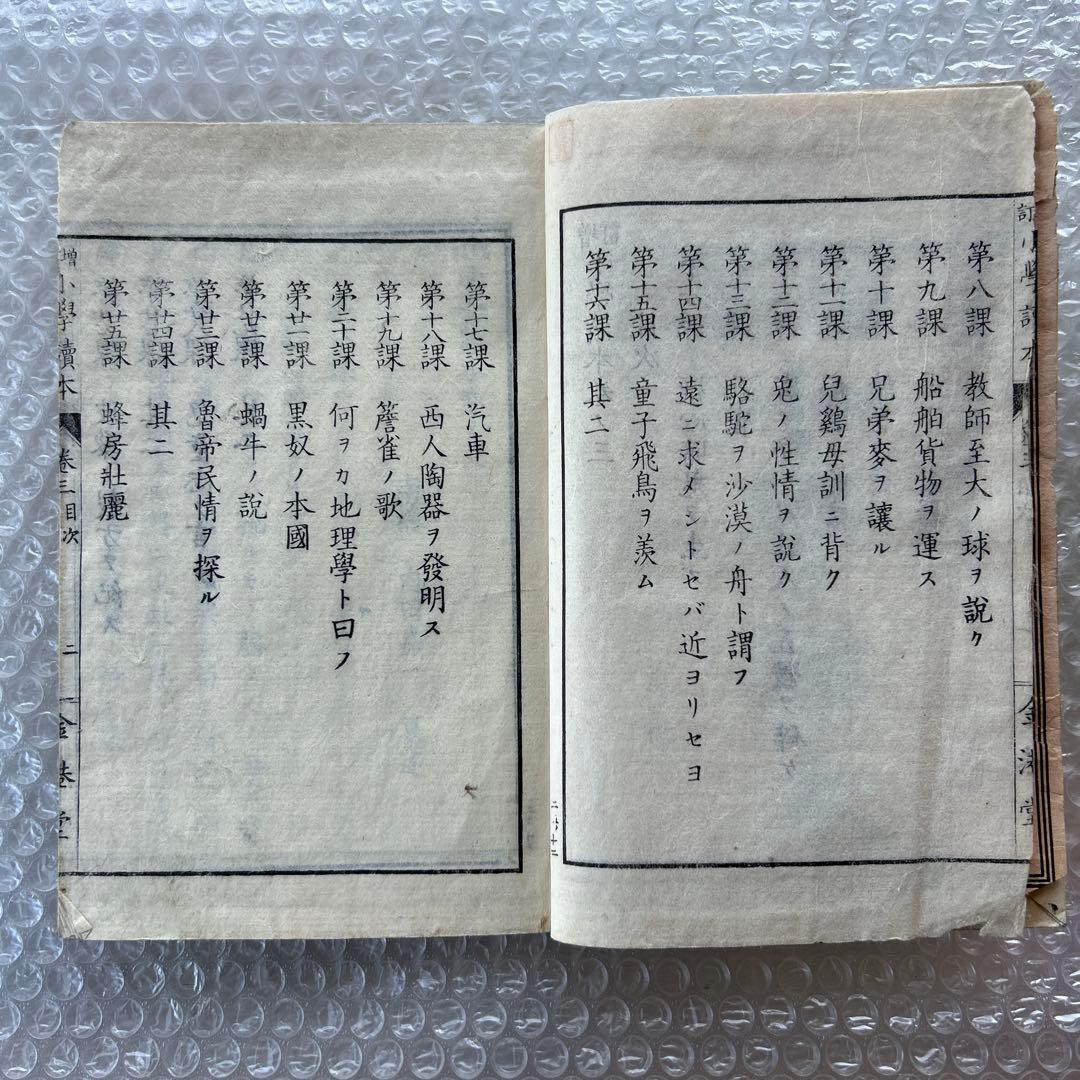 第八課 教師至大ノ球ヲ說ク
第九課 船舶貨物ヲ運ス
第十課 兄弟麥ヲ讓ル
第十一課 兒鷄母訓ニ背ク
第十二課 兎ノ性情ヲ說ク
第十三課 駱駝ヲ沙漠ノ舟ト謂フ
第十四課 遠ニ求メントセバ近ヨリセヨ
第十五課 童子飛鳥ヲ羨ム
第十六課 其二
第十七課 汽車
第十八課 西人陶器ヲ發明ス
第十九課 簷雀ノ歌
第二十課 何ヲカ地理學ト曰フ
第廿一課 黑奴ノ本國
第廿二課 蝸牛ノ說
第廿三課 魯帝民情ヲ探ル
第廿四課 其二
第廿五課 蜂房壯麗
增小學讀本 卷三目次 二 金港堂